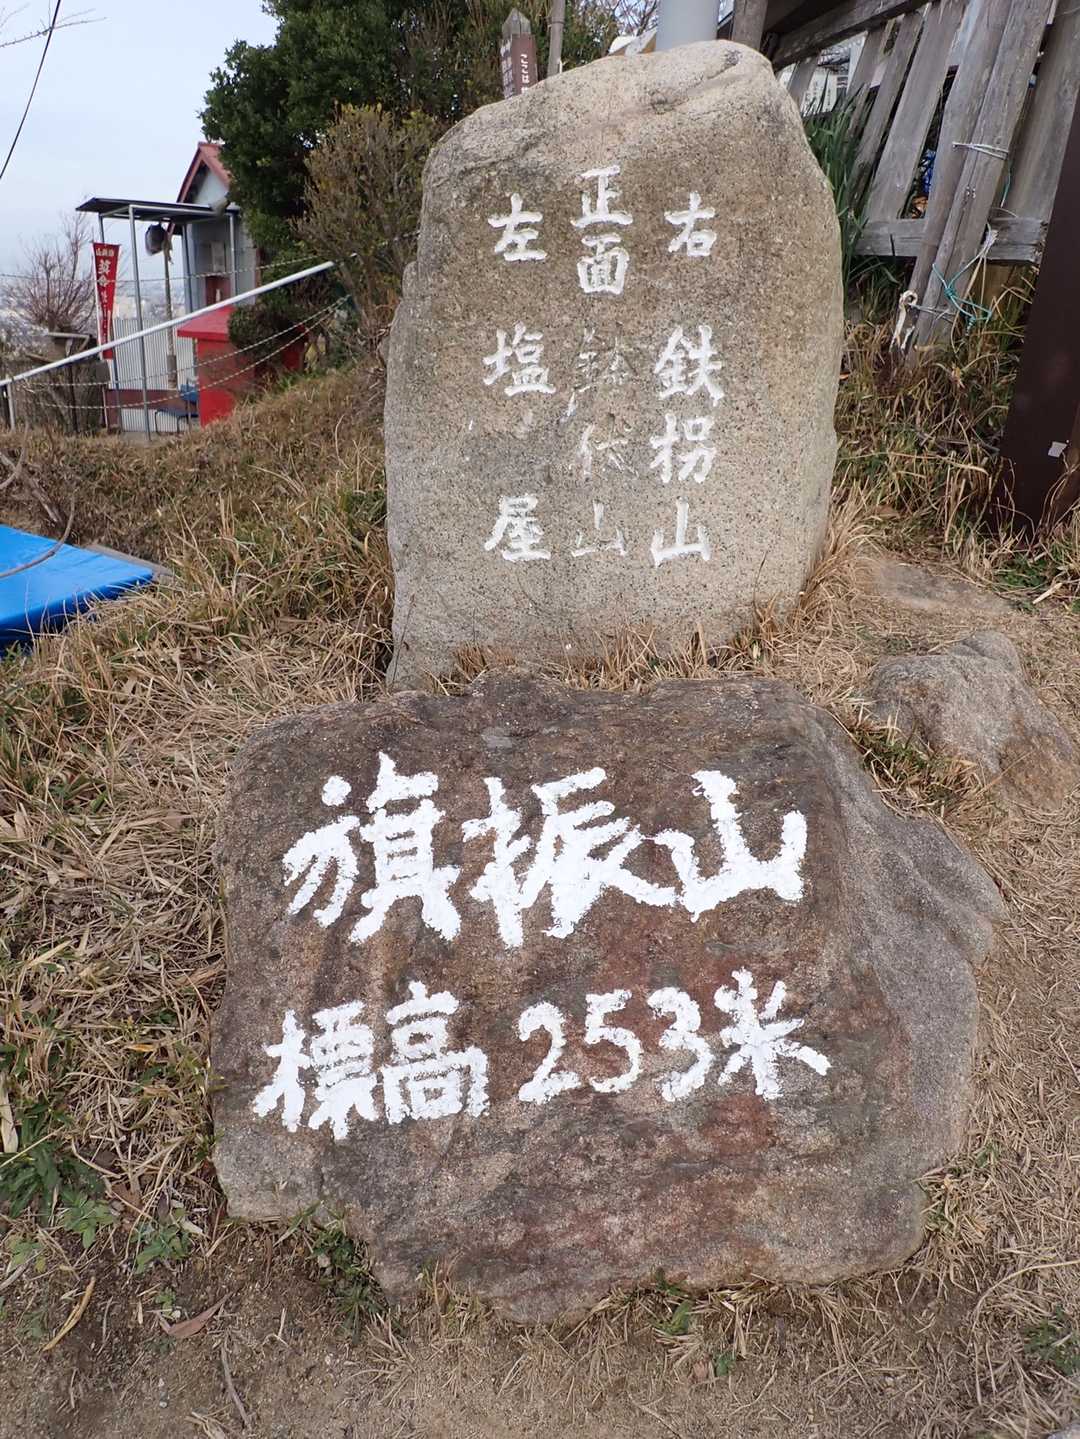 右 鉄拐山
正面 鉢伏山
左 塩屋
旗振山
標高253米
ここは